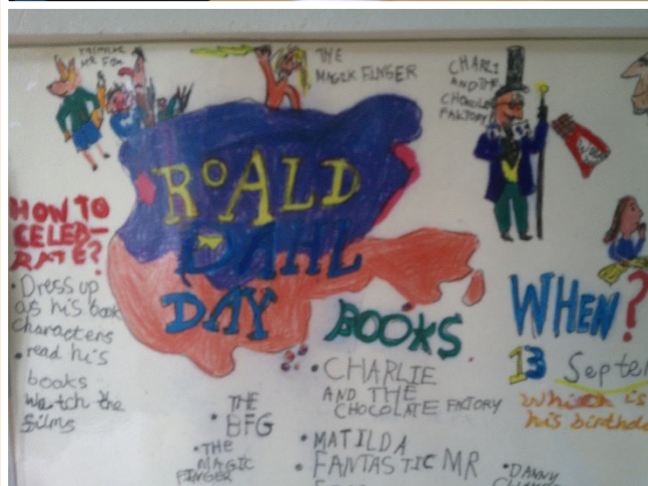 MR FOX
THE
MAGIC FINGER
CHARLI
AND THE
CHOCOLE
FACTORY
ROALD
DAHL
DAY
HOW TO
CELEB-
RATE?
• Dress up
as his book
characters
• read his
books
Watch the
films
BOOKS
• CHARLIE
AND THE
CHOCOLATE FACTORY
THE
• BFG
• THE
MAGIC
FINGER
• MATILDA
• FANTASTIC MR
• DANNY
WHEN?
13 Septe
Which is
his birthda